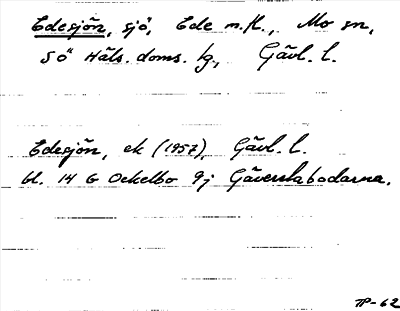 Edesjön, sjö, Ede m.fl., Mo sn,
Sö Häls. doms. lg., Gävl. l.
Edesjön, ek (1957), Gävl. l.
bl. 14 G Ockelbo 9j Gäverskabodarna.
TP-62